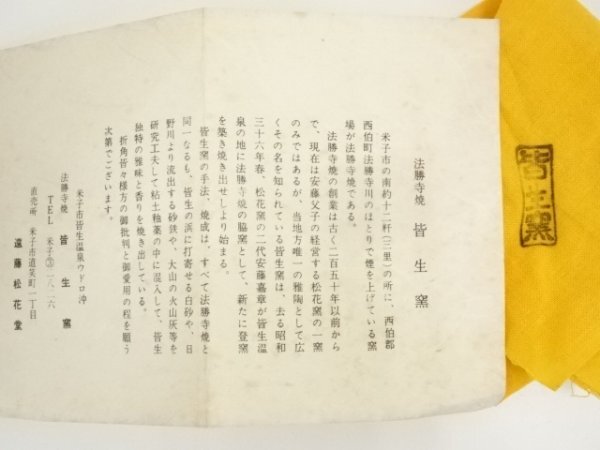 法勝寺焼 皆生窯
米子市の南約十二粁(三里)の所に、西伯郡
西伯町法勝寺川のほとりで煙を上げている窯
場が法勝寺焼である。
法勝寺焼の創業は古く二百五十年以前から
で、現在は安藤父子の経営する松花窯の一窯
のみではあるが、当地方唯一の雅陶として広
くその名を知られている皆生窯は、去る昭和
三十六年春、松花窯の二代安藤嘉章が皆生温
泉の地に法勝寺焼の脇窯として、新たに登窯
を築き焼き出せしより始まる。
皆生窯の手法、焼成は、すべて法勝寺焼と
同一なるも、皆生の浜に打寄せる白砂や、日
野川より流出する砂鉄や、大山の火山灰等を
研究工夫して粘土釉薬の中に混入して、皆生
独特の雅味と香りを焼き出している。
折角皆々様方の御批判と御愛用の程を願う
次第でございます。
米子市皆生温泉ウドロ沖
法勝寺焼 皆生窯
TEL 米子 一八二六
直売所 米子市道笑町一丁目
遠藤松花堂
皆生窯